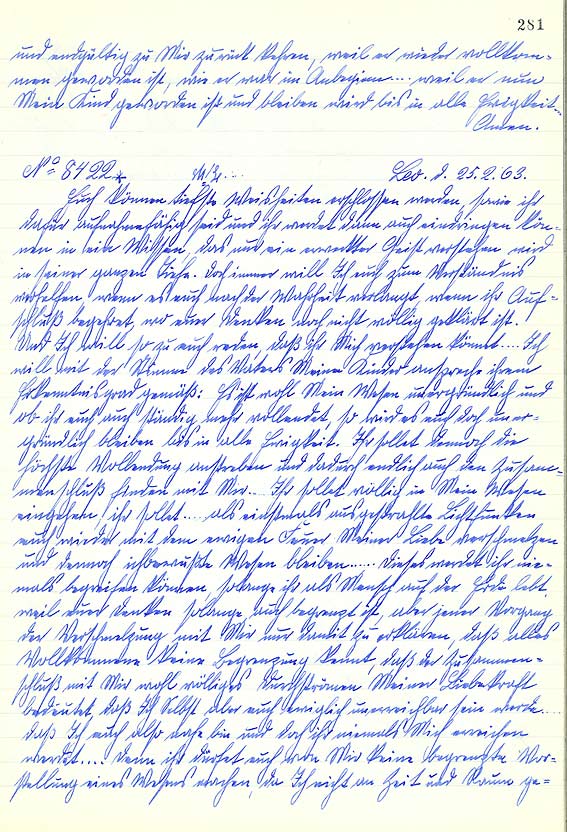 281
und endgültig zu Mir zurück kehren, weil er wieder vollkom-
men geworden ist, wie er war im Anbeginn.... weil er nun
Mein Kind geworden ist und bleiben wird bis in alle Ewigkeit...
Amen.
No 8422. Leo. d. 25.2.63.
Euch können tiefste Weisheiten erschlossen werden, sowie ihr
dafür aufnahmefähig seid und ihr werdet dann auch eindringen kön-
nen in ein Wissen, das nur ein erweckter Geist verstehen wird
in seiner ganzen Tiefe. Doch immer will Ich euch zum Verständnis
verhelfen, wenn es euch nach der Wahrheit verlangt, wenn ihr Auf-
schluß begehret, wo euer Denken noch nicht völlig geklärt ist.
Und Ich will so zu euch reden, daß ihr Mich verstehen könnt.... Ich
will mit der Stimme des Vaters Meine Kinder ansprechen ihrem
Erkenntnisgrad gemäß: Es ist wohl Mein Wesen unergründlich und
ob ihr euch auch ständig mehr vollendet, so wird es euch doch uner-
gründlich bleiben bis in alle Ewigkeit. Ihr sollet dennoch die
höchste Vollendung anstreben und dadurch endlich auch den Zusam-
menschluß finden mit Mir.... Ihr sollet völlig in Mein Wesen
eingehen, ihr sollet.... als einstmals ausgestrahlte Lichtfunken
euch wieder mit dem ewigen Feuer Meiner Liebe verschmelzen
und dennoch ichbewußte Wesen bleiben..... Dieses werdet ihr nie-
mals begreifen können, solange ihr als Mensch auf der Erde lebt,
weil euer Denken solange auch begrenzt ist, aber jener Vorgang
der Verschmelzung mit Mir nur damit zu erklären, daß alles
Vollkommene keine Begrenzung kennt, daß der Zusammen-
schluß mit Mir wohl völliges Durchströmen Meiner Liebekraft
bedeutet, daß Ich Selbst aber euch ewiglich unerreichbar sein werde....
daß Ich euch also nahe bin und doch ihr niemals Mich erreichen
werdet.... Denn ihr dürfet euch von Mir keine begrenzte Vor-
stellung eines Wesens machen, da Ich nicht an Zeit und Raum ge-